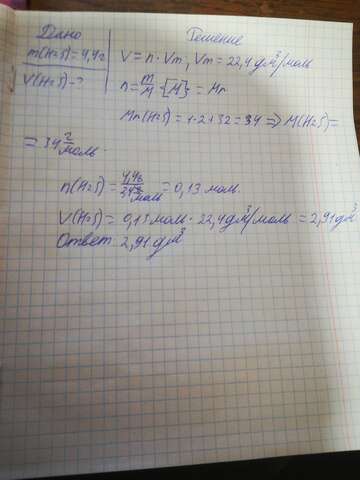 Дано
Решение
m(H2S)=4,4г
V = n · Vm, Vm = 22,4 дм³/моль
V(H2S)-?
n = m/M {M} = Mr
Mr(H2S) = 1·2+32 = 34 => M(H2S)=
= 34 г/моль.
n(H2S) = 4,4г/34 г/моль = 0,13 моль.
V(H2S) = 0,13 моль · 22,4 дм³/моль = 2,91 дм³
Ответ: 2,91 дм³